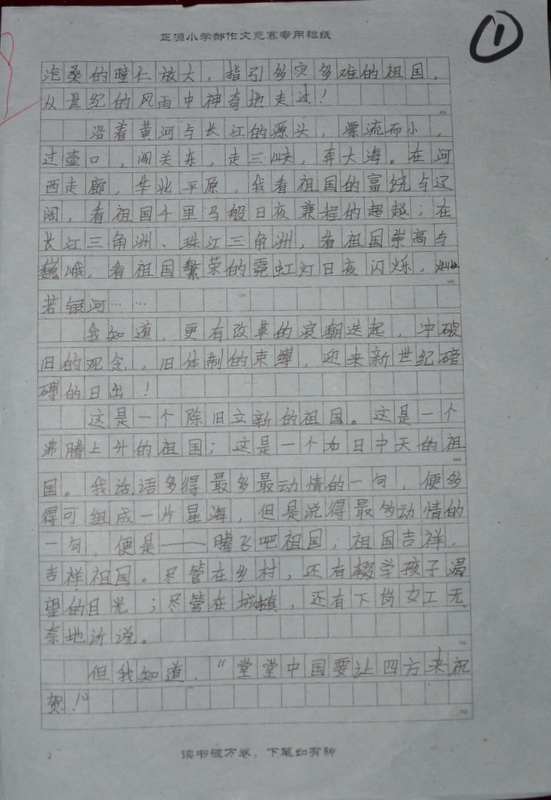 正源小学部作文竞赛专用稿纸
1
沧桑的瞳仁放大，指引多灾多难的祖国，
从世纪的风雨中神奇地走过！
沿着黄河与长江的源头，漂流而下，
过壶口，闯关东，走三峡，奔大海。在河
西走廊，华北平原，我看祖国的富饶与辽
阔，看祖国千里马般日夜兼程的超越；在
长江三角洲、珠江三角洲，看祖国崇高与
巍峨，看祖国繁荣的霓虹灯日夜闪烁，灿
若银河……
我知道，更有改革的浪潮迭起，冲破
旧的观念，旧体制的束缚，迎来新世纪磅
礴的日出！
这是一个除旧立新的祖国。这是一个
沸腾上升的祖国；这是一个如日中天的祖
国。我话语多得最多最动情的一句，便多
得可组成一片星海，但是说得最多动情的
一句，便是——腾飞吧祖国，祖国吉祥，
吉祥祖国。尽管在乡村，还有辍学孩子渴
望的目光；尽管在城镇，还有下岗女工无
奈地诉说。
但我知道，“堂堂中国要让四方来祝
贺！”
2
读书破万卷，下笔如有神